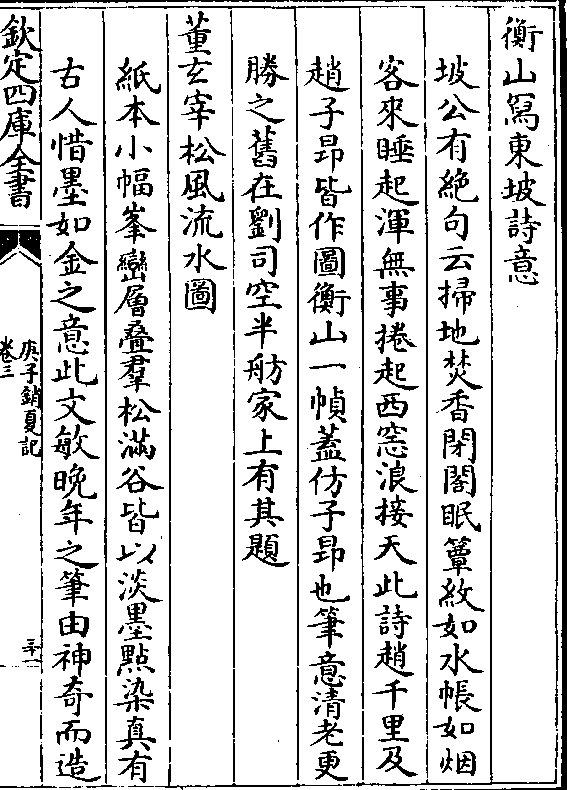 衡山寫東坡詩意
坡公有絶句云掃地焚香閉閣眠簟紋如水帳如烟
客來睡起渾無事捲起西窓浪接天此詩趙千里及
趙子昂皆作圖衡山一幀蓋仿子昂也筆意清老更
勝之舊在劉司空半舫家上有其題
董玄宰松風流水圖
紙本小幅峯巒層疊羣松滿谷皆以淡墨點染真有
古人惜墨如金之意此文敏晚年之筆由神奇而造
欽定四庫全書
庚子銷夏記
卷三
三十一